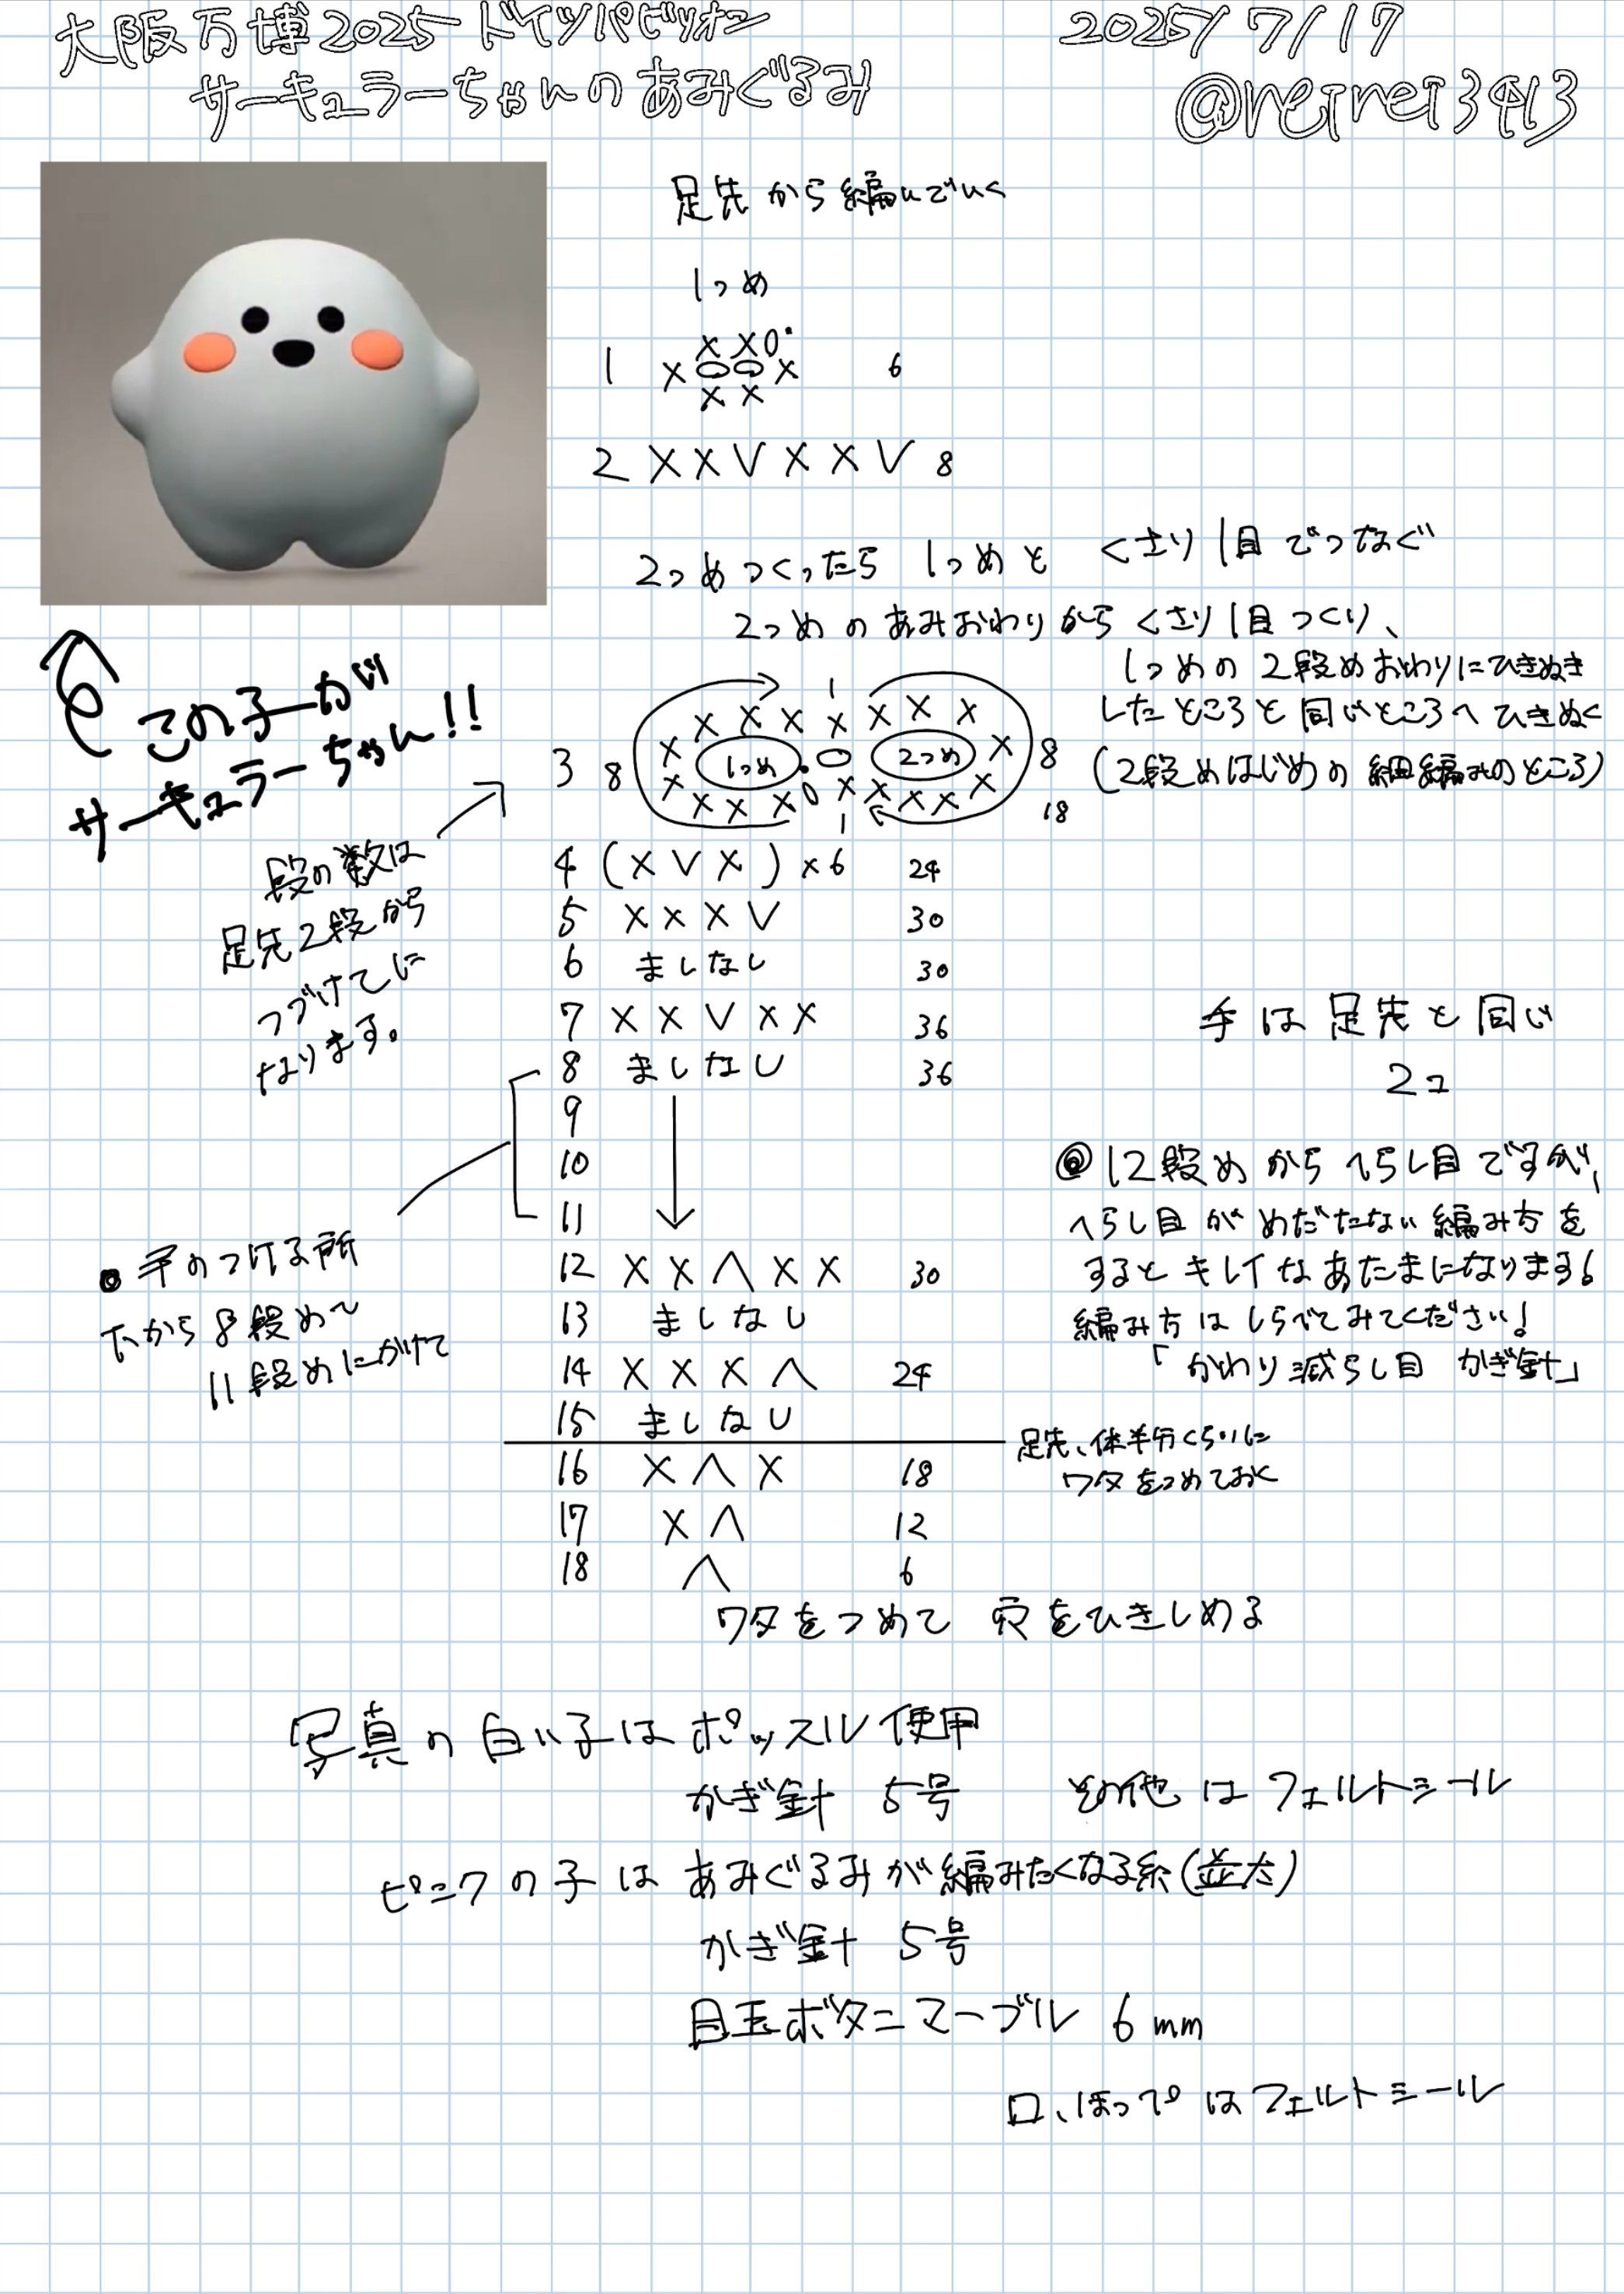 大阪万博2025 ドイツパビリオン
サーキュラーちゃんのあみぐるみ
2025/7/17
@reirei3413
足先から編んでいく
1つめ
1 X X X 0 X X X 6
2 X X V X X V 8
2つめつくったら 1つめと くさり1目でつなぐ
2つめのあみおわりからくさり1目つくり、
1つめの2段めおわりにひきぬき
したところと同じところへひきぬく
(2段めはじめの細編みのところ)
この子が
サーキュラーちゃん!!
1
X X X X X X X
3 8 X 1つめ 2つめ X 8
X X X X 0 X X X X X
1 18
段の数は
足先2段から
つづけてに
なります。
4 (X V X) x6 24
5 X X X V 30
6 ましなし 30
7 X X V X X 36
8 ましなし 36
9
10
11
手は足先と同じ
2コ
●手のつける所
だから8段め〜
11段めにかけて
12 X X Λ X X 30
13 ましなし
14 X X X Λ 24
15 ましなし
16 X Λ X 18
17 X Λ 12
18 Λ 6
◎12段めからへらし目ですが、
へらし目がめだたない編み方を
するとキレイなあたまになります!
編み方はしらべてみてください!
「かわり減らし目 かぎ針」
足先、体半分くらいに
ワタをつめておく
ワタをつめて 穴をひきしめる
写真の白い子はポッスル使用
かぎ針 5号 その他はフェルトシール
ピンクの子はあみぐるみが編みたくなる糸(並太)
かぎ針 5号
目玉ボタンマーブル 6mm
口、ほっぺはフェルトシール